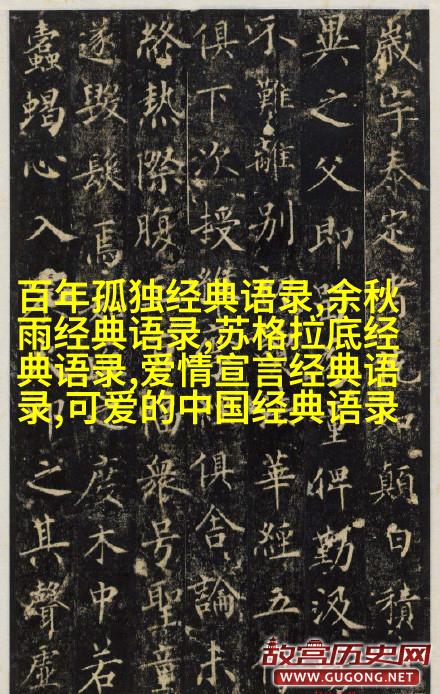 歲宇泰定 顛白積
異之父即 俾勤汲
不難離別 華經五
俱下次授 俱舍論未
終熱際腹 衆号聖童
遂毀髮焉 度木中若
蠹蝎心入 之其聲虛
百年孤独经典语录,余秋
雨经典语录,苏格拉底经
典语录,爱情宣言经典语
录,可爱的中国经典语录
故宫历史网
WWW.GUGONG.NET